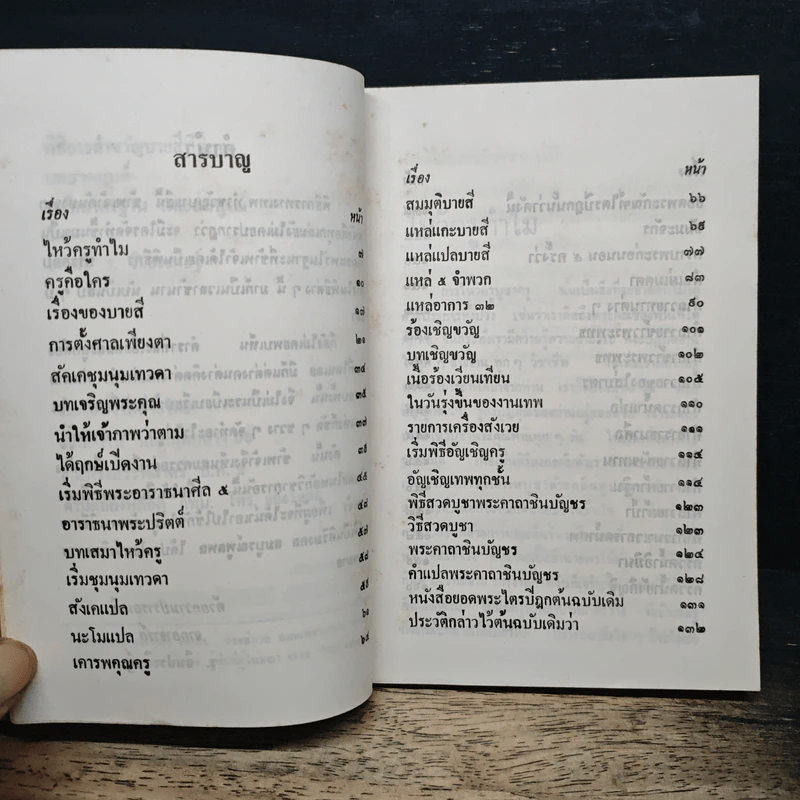 สารบาญ
เรื่อง หน้า
ไหว้ครูทำไม ๗
ครูคือใคร ๑๐
เรื่องของบายสี ๑๗
การตั้งศาลเพียงตา ๒๑
สัคเคชุมนุมเทวดา ๓๔
บทเจริญพระคุณ ๓๕
นำให้เจ้าภาพว่าตาม ๓๗
ได้ฤกษ์เปิดงาน ๓๙
เริ่มพิธีพระอาราธนาศีล ๕ ๔๕
อาราธนาพระปริตต์ ๔๘
บทเสมาไหว้ครู ๕๗
เริ่มชุมนุมเทวดา ๕๘
สังเคแปล ๕๙
นะโมแปล ๖๑
เคารพคุณครู ๖๕
เรื่อง หน้า
สมมุติบายสี ๖๖
แหล่แกะบายสี ๖๙
แหล่แปลบายสี ๗๗
แหล่ ๕ จำพวก ๘๓
แหล่อาการ ๓๒ ๙๐
ร้องเชิญขวัญ ๑๐๑
บทเชิญขวัญ ๑๐๒
เนื้อร้องเวียนเทียน ๑๐๕
ในวันรุ่งขึ้นของงานเทพ ๑๑๐
รายการเครื่องสังเวย ๑๑๑
เริ่มพิธีอัญเชิญครู ๑๑๔
อัญเชิญเทพทุกชั้น ๑๑๔
พิธีสวดบูชาพระคาถาชินบัญชร ๑๒๓
วิธีสวดบูชา ๑๒๓
พระคาถาชินบัญชร ๑๒๔
คำแปลพระคาถาชินบัญชร ๑๒๘
หนังสือยอดพระไตรปิฎกต้นฉบับเดิม ๑๓๑
ประวัติกล่าวไว้ต้นฉบับเดิมว่า ๑๓๒